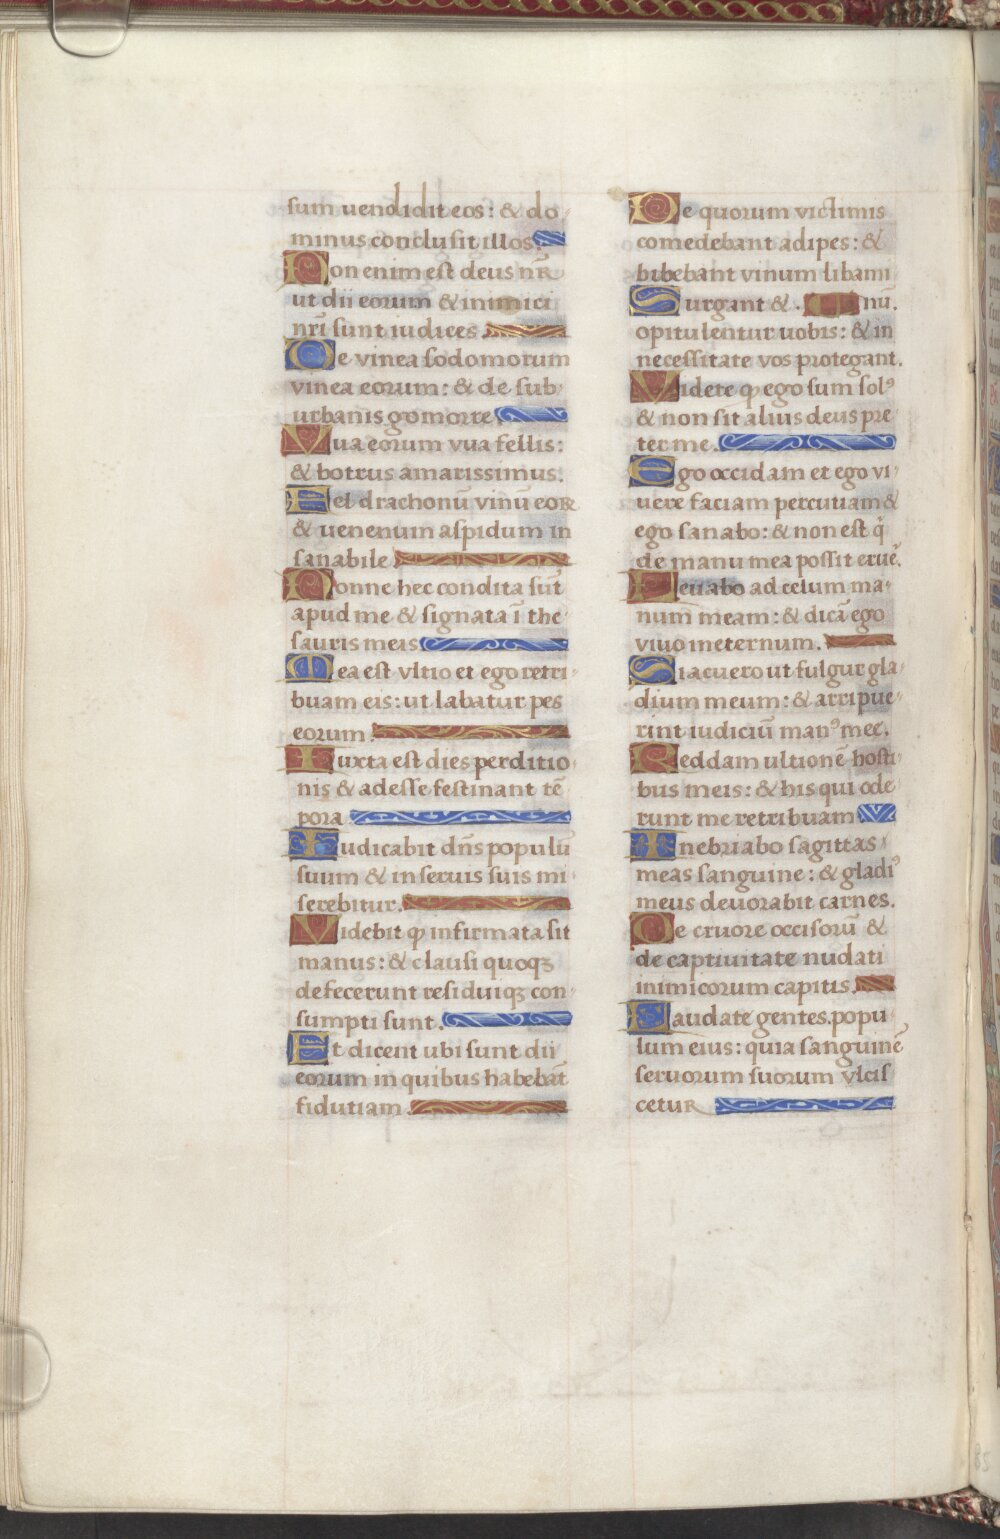 sum uendidit eos: & do
minus conclusit illos.
Non enim est deus nr̄
ut dii eorum & inimici
nrī sunt iudices.
De vinea sodomorum
vinea eorum: & de sub
urbanis gomorre
Vua eorum vua fellis:
& botrus amarissimus.
Fel drachonū vinū eoꝝ
& uenenum aspidum in
sanabile
Nonne hec condita sūt
apud me & signata ī the
sauris meis
Mea est vltio et ego retri
buam eis: ut labatur pes
eorum.
Iuxta est dies perditio
nis & adesse festinant tē
pora.
Iudicabit dn̄s populū
suum & in seruis suis mi
serebitur.
Videbit ꝙ infirmata sit
manus: & clausi quoqꝫ
defecerunt residuiqꝫ con
sumpti sunt.
Et dicent ubi sunt dii
eorum in quibus habebāt
fidutiam.
De quorum victimis
comedebant adipes: &
bibebant vinum libami
Surgant & . nū.
opitulentur uobis: & in
necessitate vos protegant.
Videte ꝙ ego sum solꝰ
& non sit alius deus pre
ter me.
Ego occidam et ego vi
uere faciam percutiam &
ego sanabo: & non est q̇
de manu mea possit eruē.
Leuabo ad celum ma
num meam: & dicā ego
viuo ineternum.
Si acuero ut fulgur gla
dium meum: & arripue
rint iudiciū manꝰ mee.
Reddam ultionē hosti
bus meis: & his qui ode
runt me retribuam
Inebriabo sagittas
meas sanguine: & gladiꝰ
meus deuorabit carnes.
De cruore occisorū &
de captiuitate nudati
inimicorum capitis.
Laudate gentes popu
lum eius: quia sanguinē
seruorum suorum vlcis
cetur
85